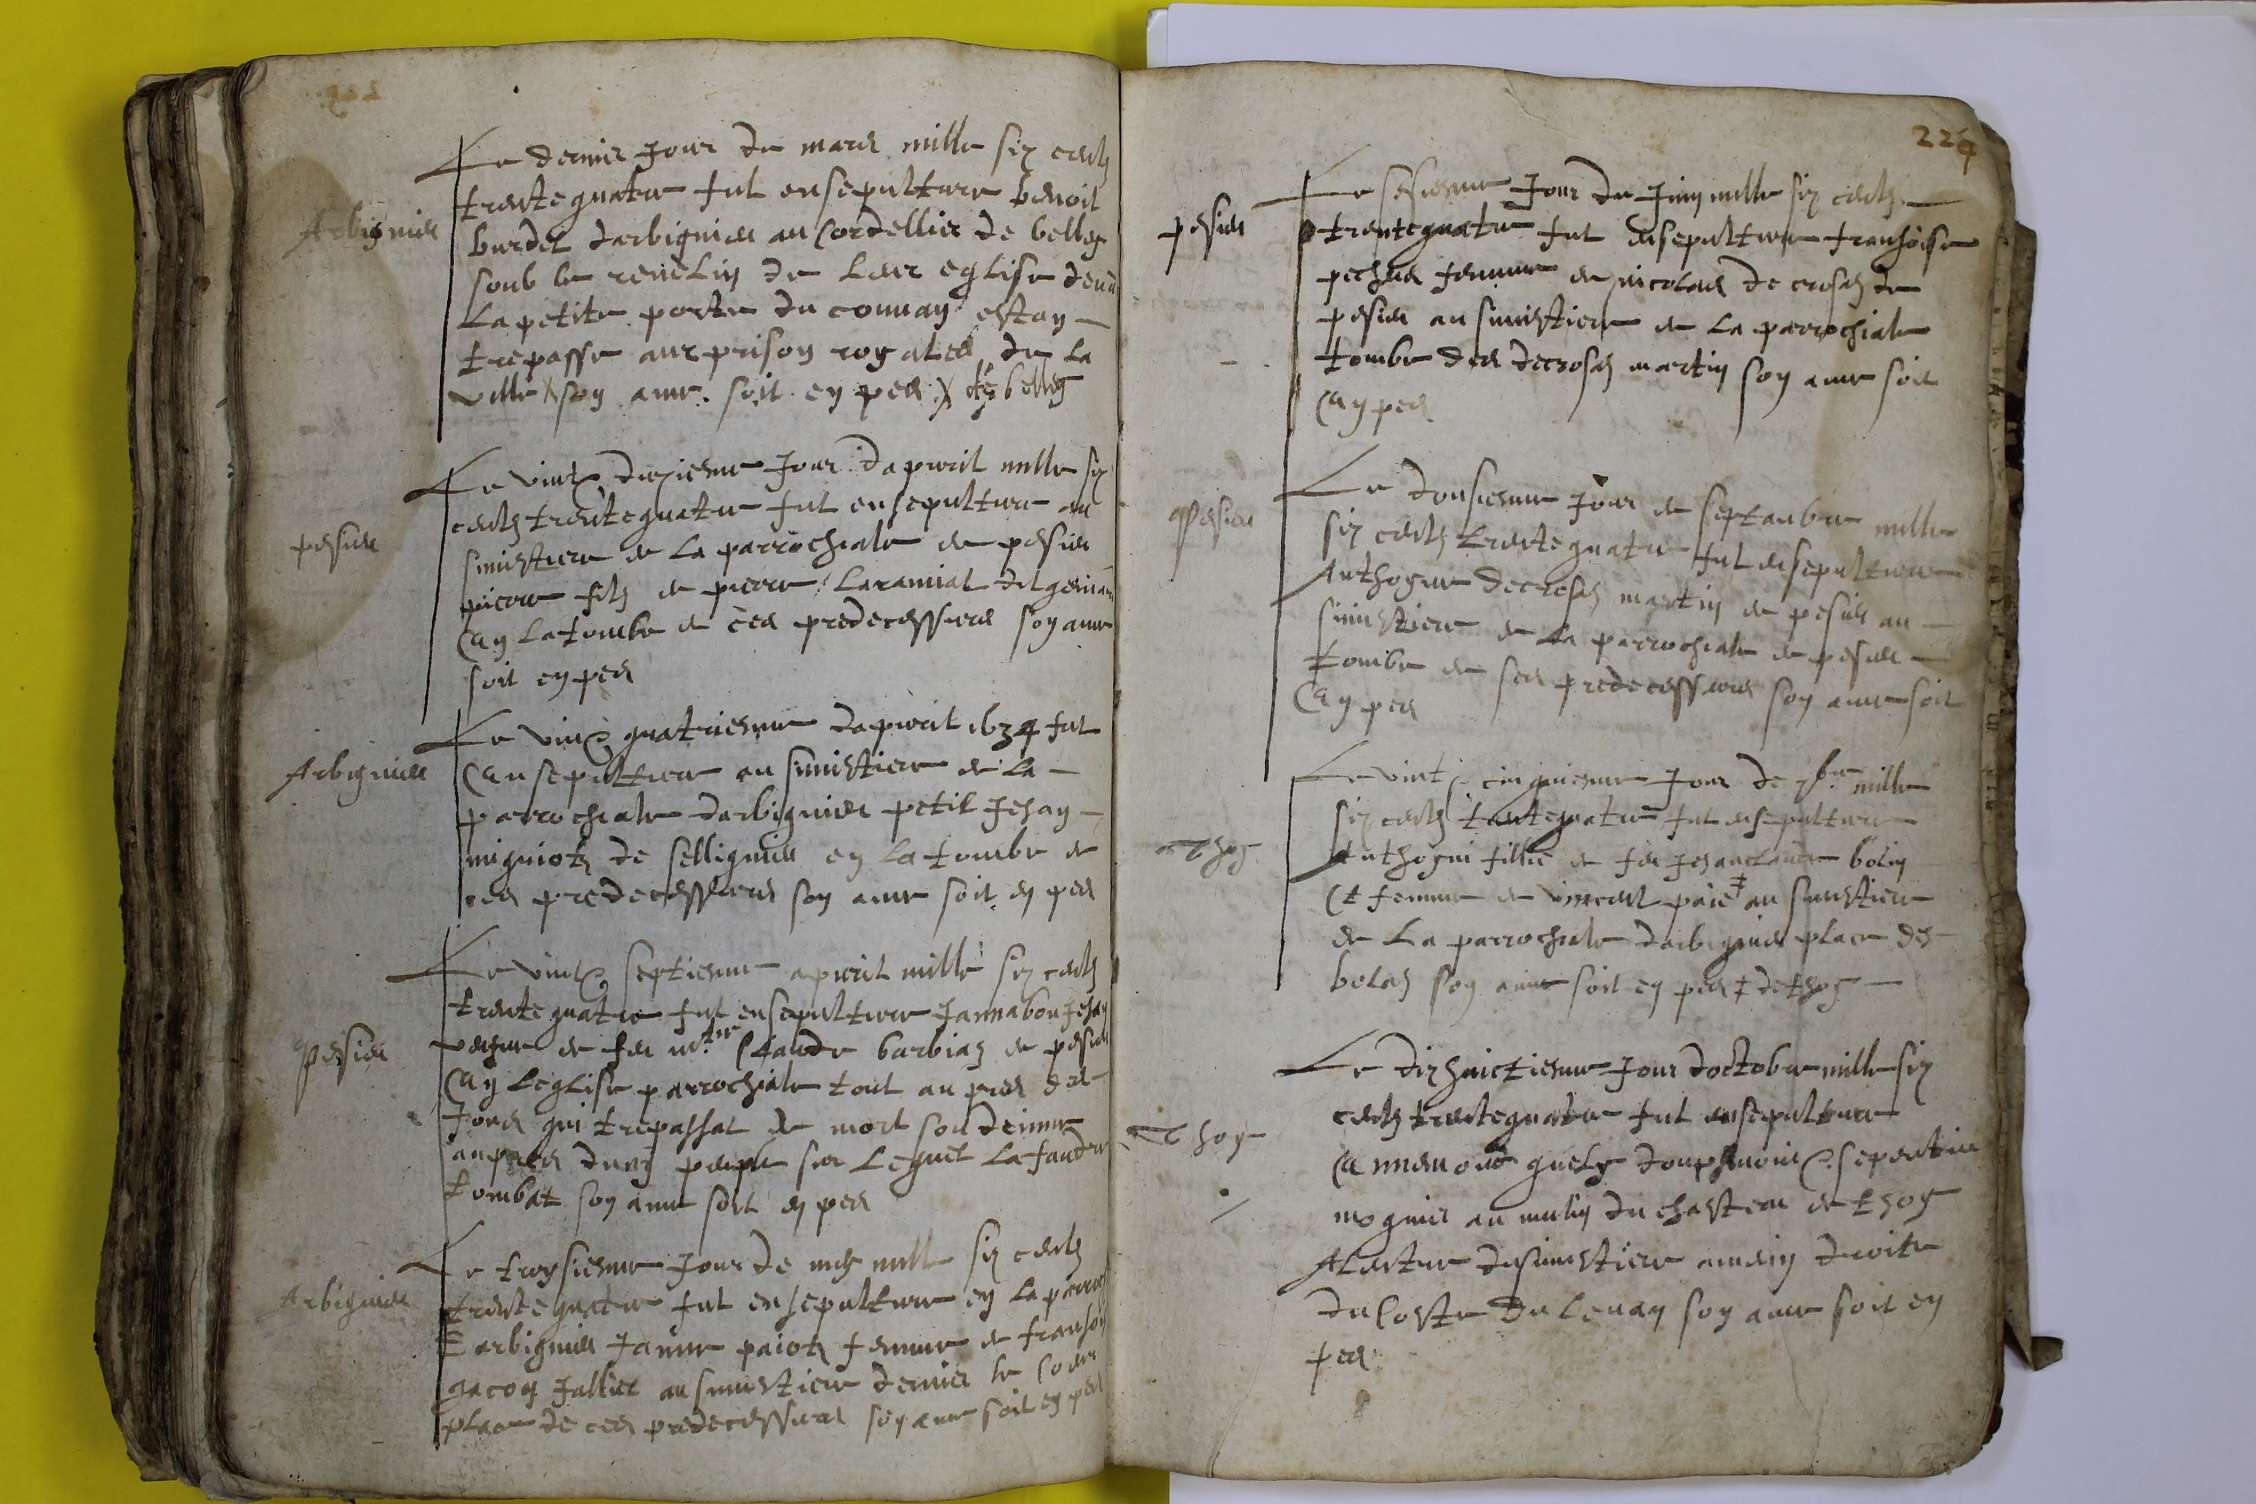 Arbignieu
Le dernier Jour de mars mille six centz
trente quatre fut ensepulture benoit
burdet darbignieu au Cordellier de belley
soub le revelin de leur eglise
La petite porte du convan estan
trepasse aux prison royales de la
ville X son ame soit en pes X de belley
pesieu
Le vint diexiesme Jour dapvril mille six
centz trente quatre fut ensepulture au
simistiere de La parrochiale de pesieu
pierre filz de pierre
En La tombe de ces predecessieurs son ame
soit en pes
Arbignieu
Le vint quatriesme dapvril 1634 fut
Ensepulture au simistiere de La
parrochiale darbignieu petit Jehan
migniotz de sellignieu en La tombe de
ces predecessieurs son ame soit en pes
Pesieu
Le vint septiesme apvril mille six centz
trente quatre fut ensepulture
vefve de feu Claude barbiaz de pesieu
En Leglise parrochiale tout au pres des
fons qui trepassat de mort soudeinne
aupres dung peuple sur Lequel La faudre
tombat son ame soit en pes
Arbignieu
Le troysiesme Jour de may mille six centz
trente quatre fut ensepulture en La
Darbignieu Janne paiotz femme de
Jallier au simistiere dernier le
place de ces predecessieurs son ame soit en pes
224
pesieu
Le Jour de Juin mille six centz
trente quatre fut ensepulture fransoise
femme de nicolas de crosaz de
pesieu au simistiere de La parrochiale
tombe des decrosaz martin son ame soit
En pes
Pesieu
Le dousiesme Jour de septanbre mille
six centz trente quatre fut ensepulture
Anthoyne decrosaz martin de pesieu au
simistiere de La parrochiale de pesieu
tombe de ses predecessieurs son ame soit
En pes
Thoy
Le vint cinquiesme Jour de 7bre mille
six centz trante quatre fut ensepulture
Anthoyni fillie de feu Jehanclaude bolin
Et femme de vincent paie ‡ au simistiere
de La parrochiale darbignieu place des
bolaz son ame soit en pes ‡ de thoy
Thoy
Le dix huictiesme Jour doctobre mille six
centz trente quatre fut ensepulture
mognier au mulin du chasteau de thoy
Alentree du simistiere a mein droite
du Coste Du Levan son ame soit en
pes